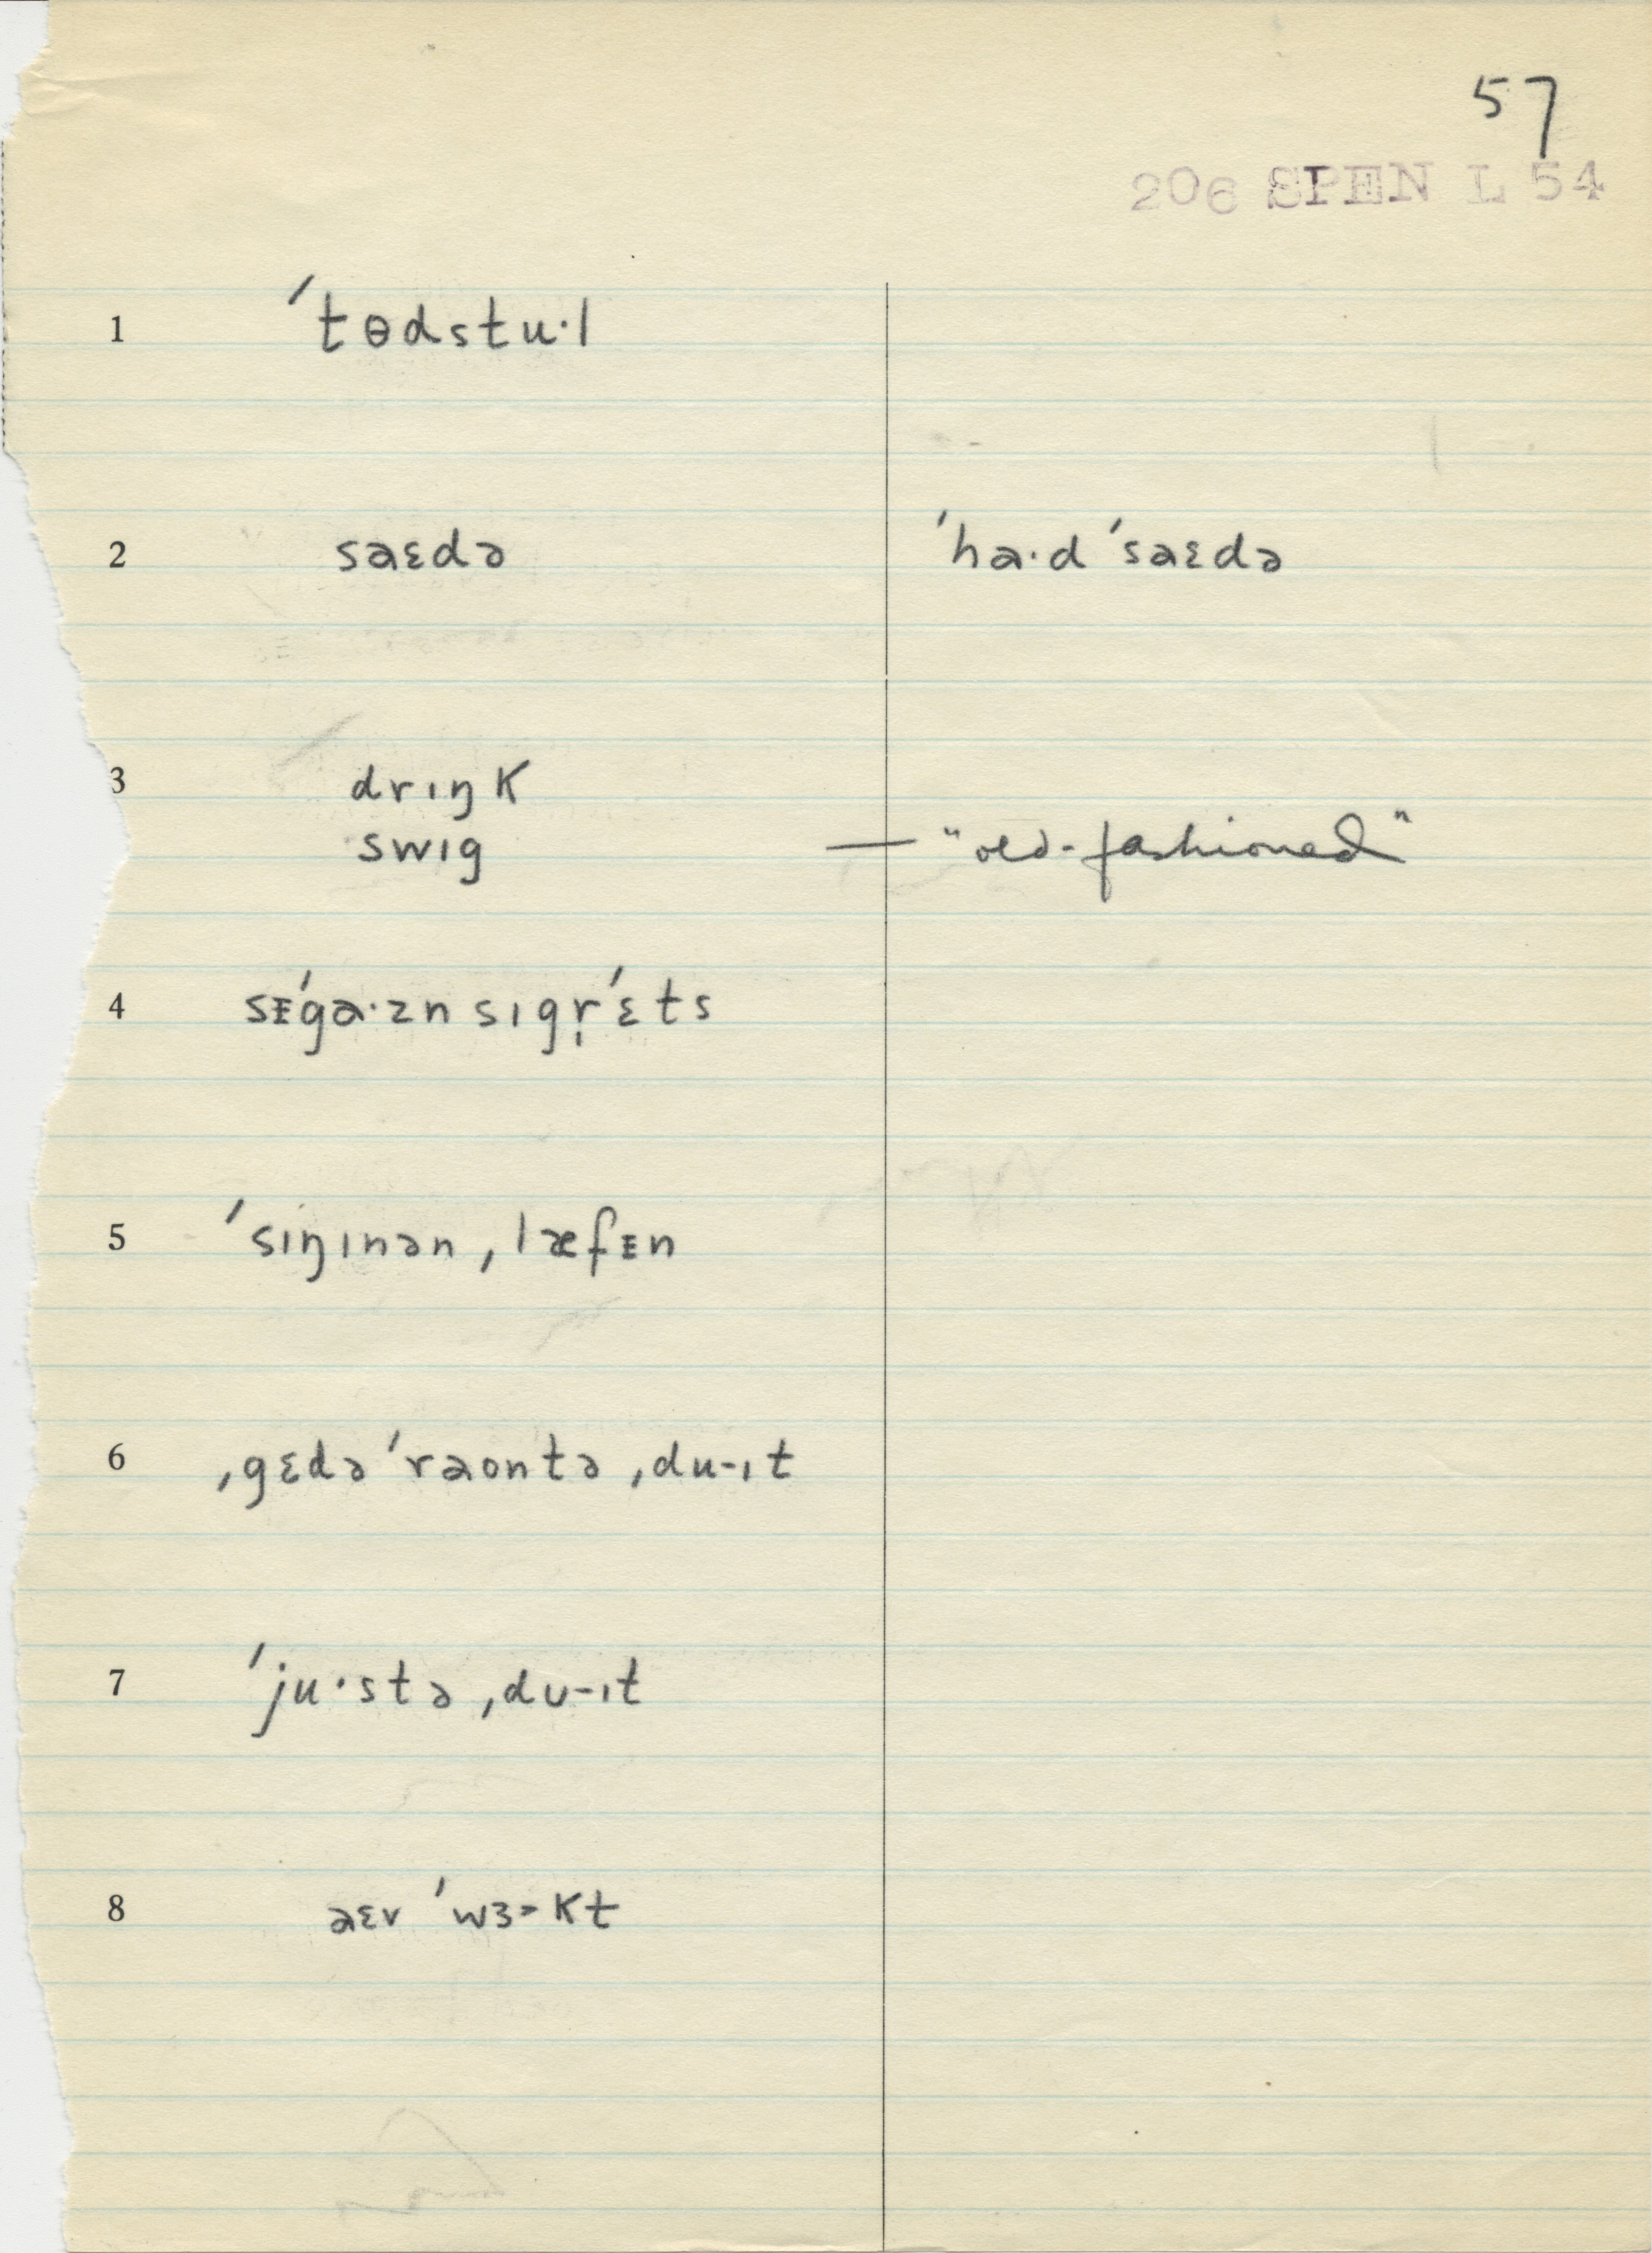 57
206 SPEN L 54
1 ˈtɵdstu·l
2 saɛdə ˈha·d ˈsaɛdə
3 drɪŋk
swɪg — "old-fashioned"
4 sᵻˈga·zn sɪgṛˈɛts
5 ˈsɪŋɪnən ˌlæfᵻn
6 ˌgɛdə ˈraontə ˌdu-ɪt
7 ˈju·stə ˌdu-ɪt
8 aɛv ˈwɜ˞kt